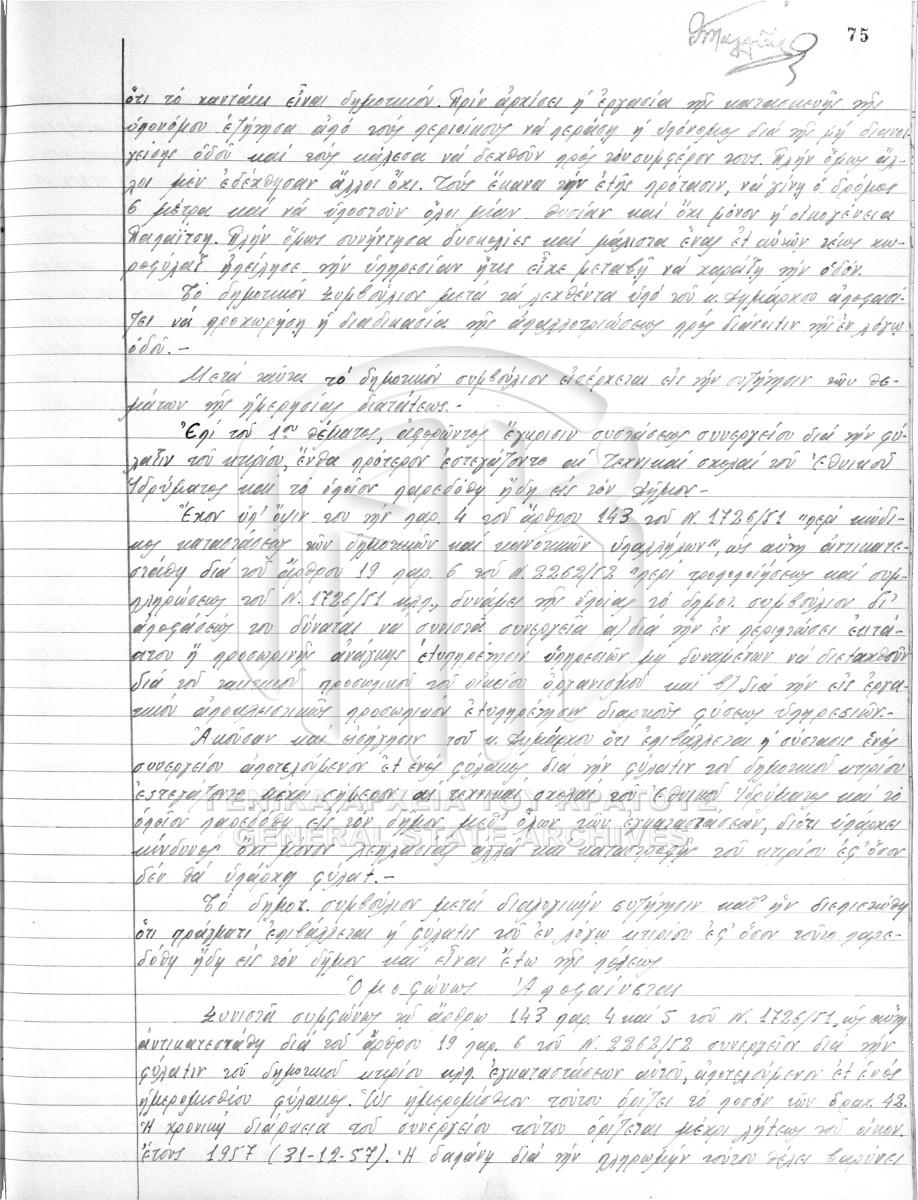 75
ὅτι τὸ χαντάκι εἶναι δημοτικόν. Πρὶν ἀρχίσει ἡ ἐργασία τῆς κατασκευῆς τῆς
ὑπονόμου ἐζήτησα ἀπὸ τοὺς περιοίκους νὰ περάση ἡ ὑπόνομος διὰ τῆς μὴ διανοι-
γείσης ὁδοῦ καὶ τοὺς κάλεσα νὰ δεχθοῦν πρὸς τὸ συμφέρον τους. Πλὴν ὅμως ἄλ-
λοι μὲν ἐδέχθησαν ἄλλοι ὄχι. Τοὺς ἔκανα τὴν ἑξῆς πρότασιν, νὰ γίνη ὁ δρόμος
6 μέτρα καὶ νὰ ὑποστοῦν ὅλοι μίαν θυσίαν καὶ ὄχι μόνον ἡ οἰκογένεια
Παλαΐτση. Πλὴν ὅμως συνήντησα δυσκολίες καὶ μάλιστα ἕνας ἐξ αὐτῶν τέως χω-
ροφύλαξ ἠπείλησε τὴν ὑπηρεσίαν ἥτις εἶχε μεταβῆ νὰ χαράξη τὴν ὁδόν.
Τὸ δημοτικὸν Συμβούλιον μετὰ τὰ λεχθέντα ὑπὸ τοῦ κ. Δημάρχου ἀποφασί-
ζει νὰ προχωρήση ἡ διαδικασία τῆς ἀπαλλοτριώσεως πρὸς διάνοιξιν τῆς ἐν λόγω
ὁδοῦ.—
Μετὰ ταῦτα τὸ δημοτικὸν συμβούλιον εἰσέρχεται εἰς τὴν συζήτησιν τῶν θε-
μάτων τῆς ἡμερησίας διατάξεως.—
Ἐπὶ τοῦ 1ου θέματος, ἀφορῶντος ἔγκρισιν συστάσεως συνεργείου διὰ τὴν φύ-
λαξιν τοῦ κτιρίου, ἔνθα πρότερον ἐστεγάζοντο αἱ τεχνικαὶ σχολαὶ τοῦ Ἐθνικοῦ
Ἱδρύματος καὶ τὸ ὁποῖον παρεδόθη ἤδη εἰς τὸν Δῆμον—
Ἔχον ὑπ' ὄψιν του τὴν παρ. 4 τοῦ ἄρθρου 143 τοῦ Ν. 1726/51 "περὶ κώδι-
κος καταστάσεως τῶν δημοτικῶν καὶ κοινοτικῶν ὑπαλλήλων", ὡς αὕτη ἀντικατε-
στάθη διὰ τοῦ ἄρθρου 19 παρ. 6 τοῦ Ν. 2262/52 "περὶ τροποποιήσεως καὶ συμ-
πληρώσεως τοῦ Ν. 1726/51 κλπ., δυνάμει τῆς ὁποίας τὸ δημοτ. συμβούλιον δι'
ἀποφάσεώς του δύναται νὰ συνιστᾶ συνεργεῖα α) διὰ τὴν ἐν περιπτώσει ἐκτά-
κτου ἢ προσωρινῆς ἀνάγκης ἐξυπηρέτησιν ὑπηρεσιῶν μὴ δυναμένων νὰ διεξαχθοῦν
διὰ τοῦ τακτικοῦ προσωπικοῦ τοῦ οἰκείου ὀργανισμοῦ καὶ β) διὰ τὴν εἰς ἐργα-
τικὸν ἀποκλειστικῶς προσωπικὸν ἐξυπηρέτησιν διαρκοῦς φύσεως ὑπηρεσιῶν.—
Ἀκοῦσαν καὶ εἰσήγησιν τοῦ κ. Δημάρχου ὅτι ἐπιβάλλεται ἡ σύστασις ἑνὸς
συνεργείου ἀποτελουμένου ἐξ ἑνὸς φύλακος διὰ τὴν φύλαξιν τοῦ δημοτικοῦ κτιρίου
ἐστεγάζοντο μέχρι σήμερον αἱ τεχνικαὶ σχολαὶ τοῦ Ἐθνικοῦ Ἱδρύματος καὶ τὸ
ὁποῖον παρεδόθη εἰς τὸν δῆμον μεθ' ὅλων τῶν ἐγκαταστάσεων, διότι ὑπάρχει
κίνδυνος ὄχι μόνον λεηλασίας ἀλλὰ καὶ καταστροφῆς τοῦ κτιρίου ἐφ' ὅσον
δὲν θὰ ὑπάρχη φύλαξ.—
Τὸ δημοτ. συμβούλιον μετὰ διαλογικὴν συζήτησιν καθ' ἣν διεπιστώθη
ὅτι πράγματι ἐπιβάλλεται ἡ φύλαξις τοῦ ἐν λόγω κτιρίου ἐφ' ὅσον τοῦτο παρε-
δόθη ἤδη εἰς τὸν δῆμον καὶ εἶναι ἔξω τῆς πόλεως
Ὁμοφώνως Ἀποφαίνεται
Συνιστᾶ συμφώνως τῷ ἄρθρω 143 παρ. 4 καὶ 5 τοῦ Ν. 1726/51, ὡς αὕτη
ἀντικατεστάθη διὰ τοῦ ἄρθρου 19 παρ. 6 τοῦ Ν. 2262/52 συνεργεῖον διὰ τὴν
φύλαξιν τοῦ δημοτικοῦ κτιρίου κλπ. ἐγκαταστάσεων αὐτοῦ, ἀποτελούμενον ἐξ ἑνὸς
ἡμερομισθίου φύλακος. Ὡς ἡμερομίσθιον τούτου ὁρίζει τὸ ποσὸν τῶν δραχ. 42.
Ἡ χρονικὴ διάρκεια τοῦ συνεργείου τούτου ὁρίζεται μέχρι λήξεως τοῦ οἰκον.
ἔτους 1957 (31-12-57). Ἡ δαπάνη διὰ τὴν πληρωμὴν τούτου θέλει βαρύνει
ΓΕΝΙΚΑ ΑΡΧΕΙΑ ΤΟΥ ΚΡΑΤΟΥΣ
GENERAL STATE ARCHIVES